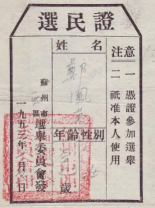 選民證
注意
一 憑證參加選舉
二 祇准本人使用
姓名
鳳
性別
年齡
歲
蘇州市
區選舉委員會發
一九五三年
月
日